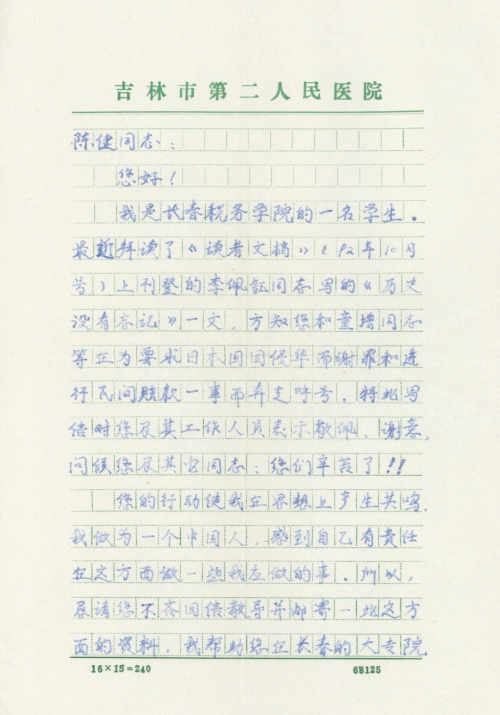 吉林市第二人民医院
陈健同志：
您好！
我是长春税务学院的一名学生。
最近拜读了《读者文摘》（92年10月
号）上刊登的李佩钰同志写的《历史
没有忘记》一文，方知您和童增同志
等正为要求日本国因侵华而谢罪和进
行民间赔款一事而奔走呼号。特此写
信对您及其工作人员表示敬佩、谢意，
问候您及其它同志：您们辛苦了！！
您的行动使我在思想上产生共鸣，
我做为一个中国人，感到自己有责任
在这方面做一些我应做的事。所以，
恳请您不吝回信教导并邮寄一些这方
面的资料，我帮助您在长春的大专院
16×15=240
68125